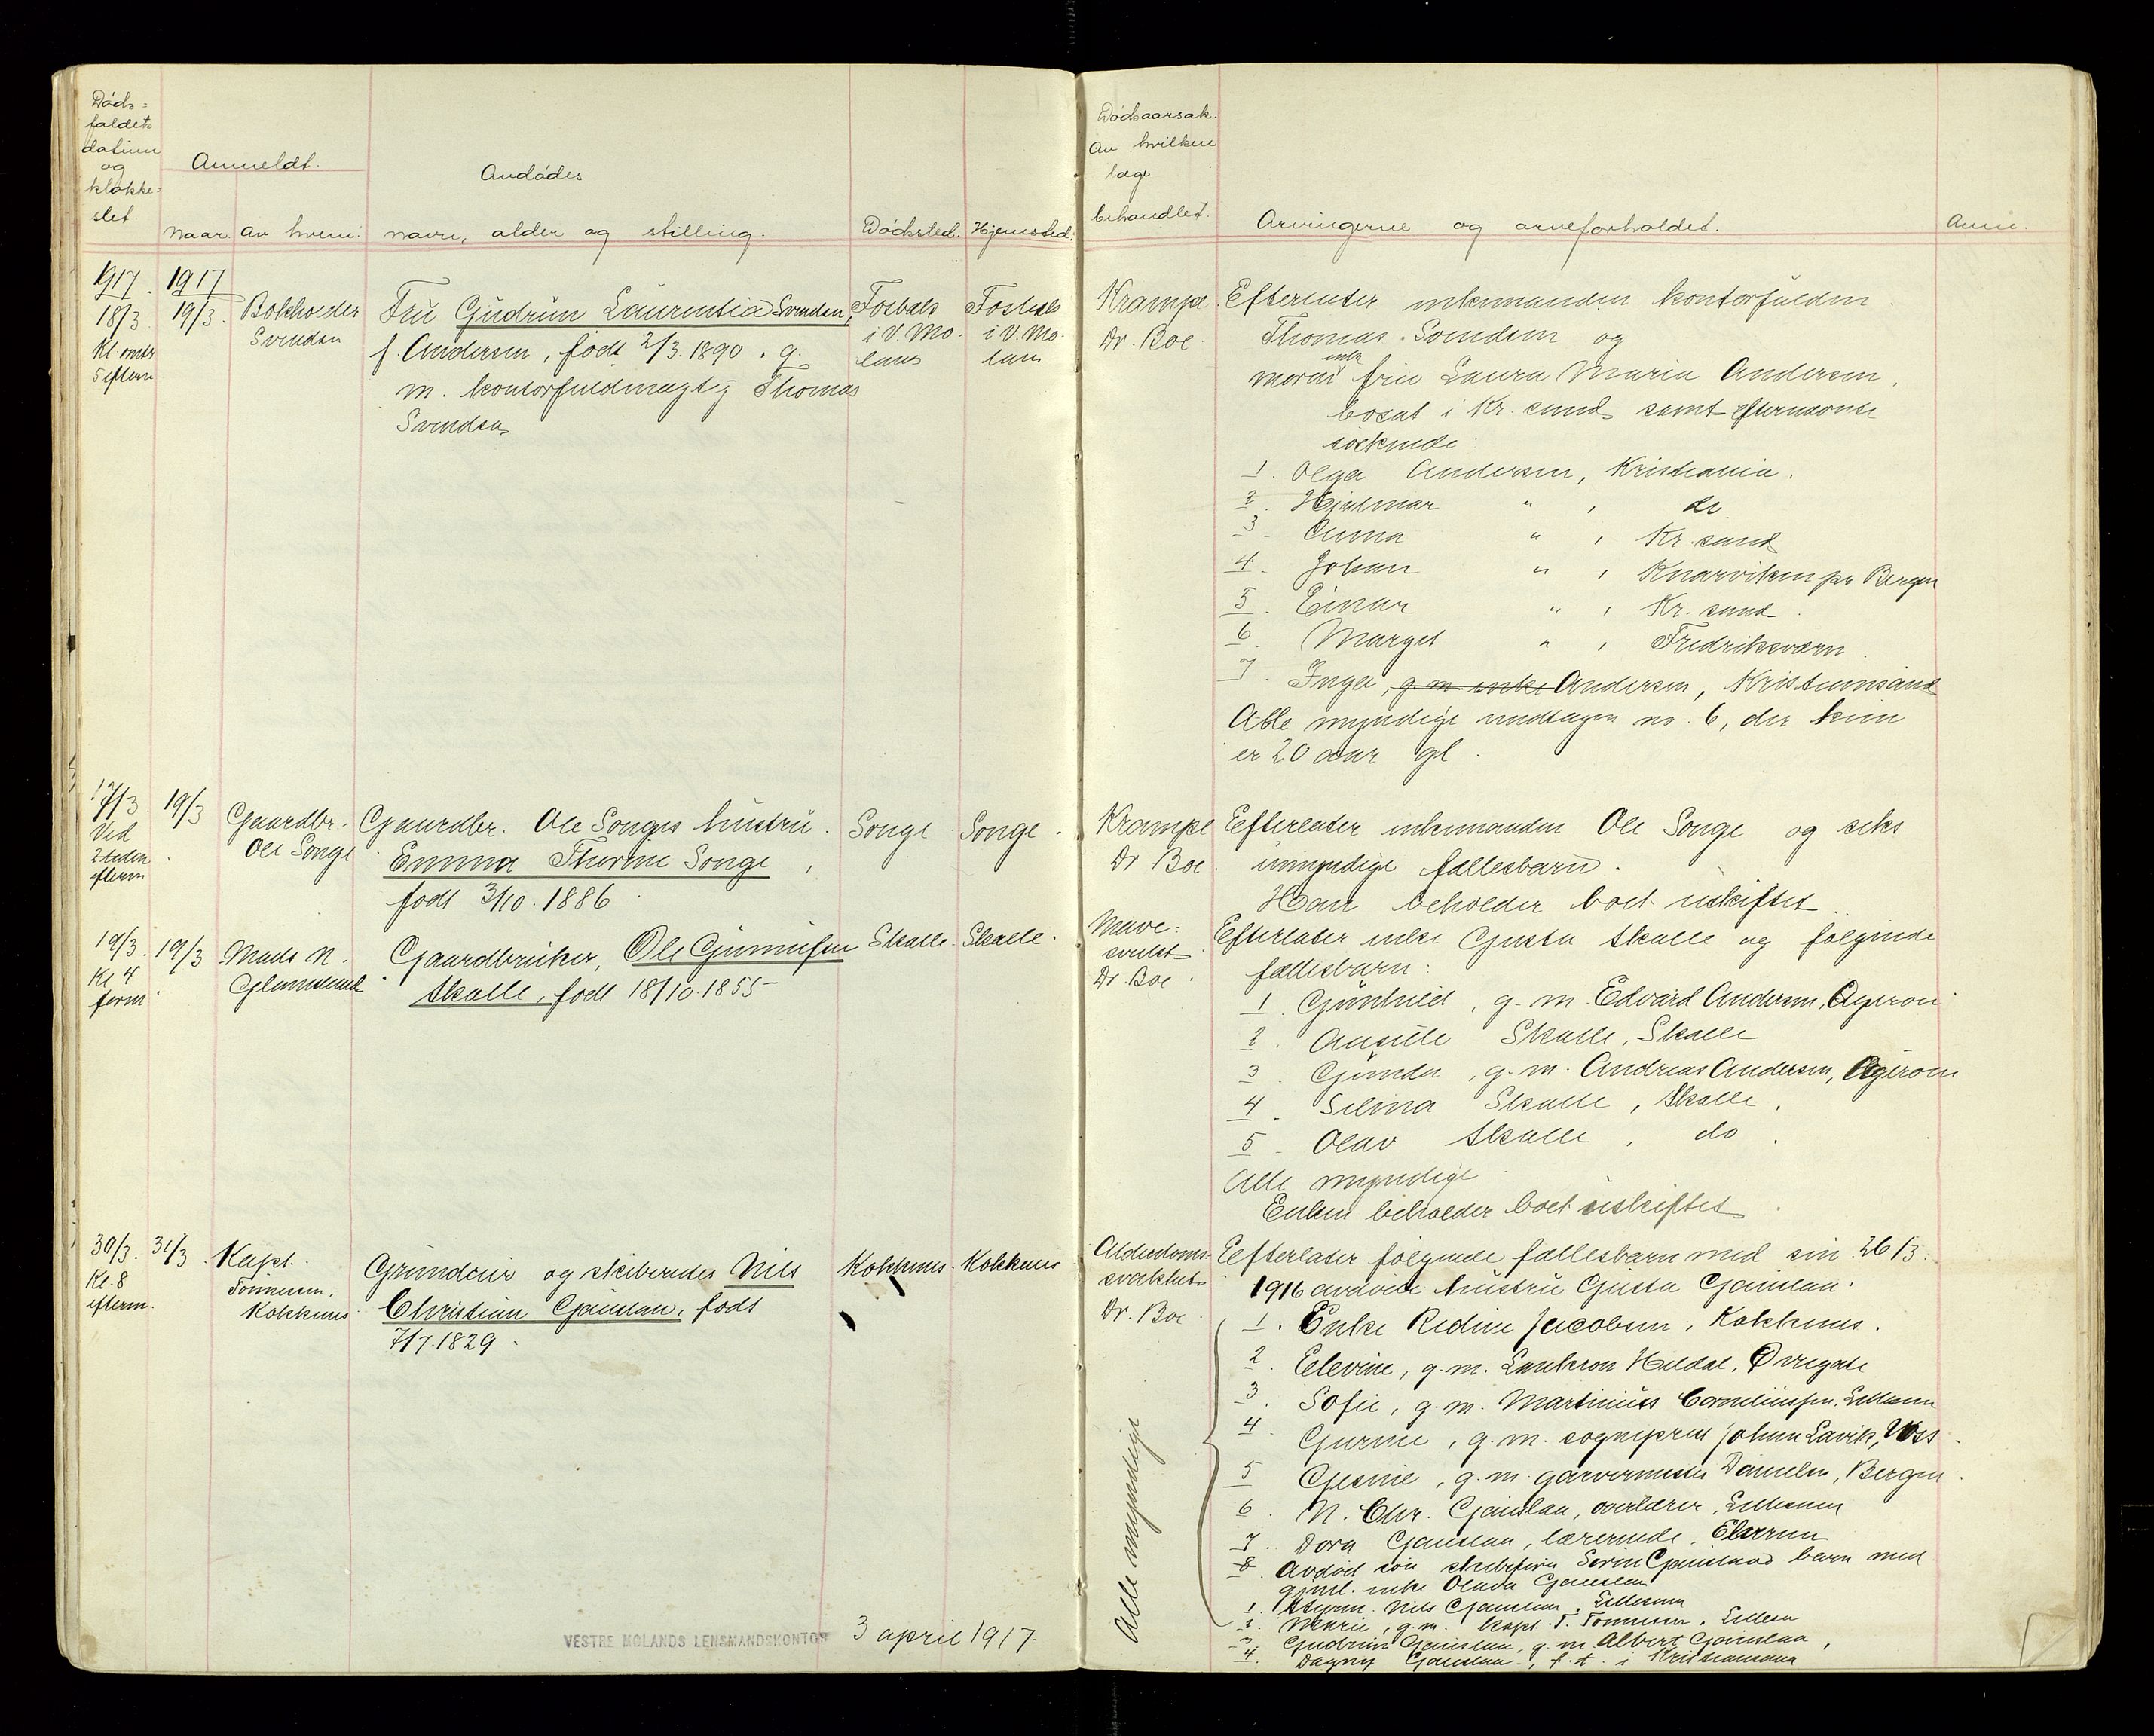 Døds=
faldets
datum
og
klokke=
slet.
Anmeldt.
naar. av hvem.
Avdødes
navn, alder og stilling.
Dødssted. Hjemsted.
1917. 1917
18/3 19/3. Bokholder Svendsen
Kl. omtr 5 efterm
Fru Gudrun Laurentia Svendsen,
f. Andersen, født 2/3.1890. g.
m. kontorfuldmægtig Thomas
Svendsen
i V. Mo-
land
i V. Mo-
land
17/3. 19/3 Gaardbr. Ole Songe
Ved
efterm
Gaardbr. Ole Songes hustru
Emma Thorine Songe,
født 3/10.1886
Songe Songe.
19/3. 19/3 Mads N.
Kl 4
form
Gaardbruker, Ole Gunnufsen
Skalle, født 18/10.1855
Skalle. Skalle.
30/3. 31/3. Kapt.
Kl. 8
efterm.
Tønnesen,
Kokkenes
Nils
Christian Gauslaa, født
7/7.1829.
Kokkenes. Kokkenes
VESTRE MOLANDS LENSMANDSKONTOR 3 april 1917.
Dødsaarsak.
Av hvilken
læge
behandlet.
Arvingerne og arveforholdet.
Anm.
Krampe
Dr. Boe
Efterlater enkemanden kontorfuldm.
Thomas Svendsen og
moren enke fru Laura Maria Andersen,
bosat i Kr. sand samt efternævnte
søskende
1. Olga Andersen, Kristiania.
2. Hjalmar " , do
3. Anna " , Kr. sand
4. Johan " , Knarviken pr Bergen
5. Einar " , Kr. sand.
6. Margit " , Fredriksværn
7. Inga, g. m. enke Andersen, Kristiansand
Alle myndige undtagen no. 6, der kun
er 20 aar gl.
Krampe
Dr Boe.
Efterlater enkemanden Ole Songe og seks
umyndige fællesbarn.
Han beholder boet uskiftet
Mave-
svulst
Dr Boe.
Efterlater enke Gusta Skalle og følgende
fællesbarn:
1. Gunhild, g. m. Edvard Andersen, Agerøen
2. Skalle, Skalle
3. Gunda, g. m. Andreas Andersen, Agerøen
4. Selma Skalle, Skalle.
5. Olav Skalle, do.
Alle myndige
Enken beholder boet uskiftet.
Alderdoms-
svakhet
Dr. Boe.
Efterlater følgende fællesbarn med sin 26/3.
1916 avdøde hustru Gusta Gauslaa.
1. Enke Redine Jacobsen, Kokkenes.
2. Elevine, g. m. Øvregate
3. Sofie, g. m. Martinius Corneliussen, Lillesand
4. Gurine, g. m. sogneprest Johan Lavik, Voss.
5. g. m. garvermester Danielsen, Bergen.
6. N. Chr. Gauslaa, overlærer, Lillesand
7. Dora Gauslaa, lærerinde, Elverum
8. Avdød søn skibsfører Gauslaas barn med
gjenl. enke Olava Gauslaa
1. Styrm. Nils Gauslaa, Lillesand
2. Marie, g. m. kapt. T. Tønnesen, Lillesa
3. Gudrun Gauslaa, g. m. Albert Gauslaa,
4. Dagny Gauslaa, f. t. i Kristiansand
Alle myndige